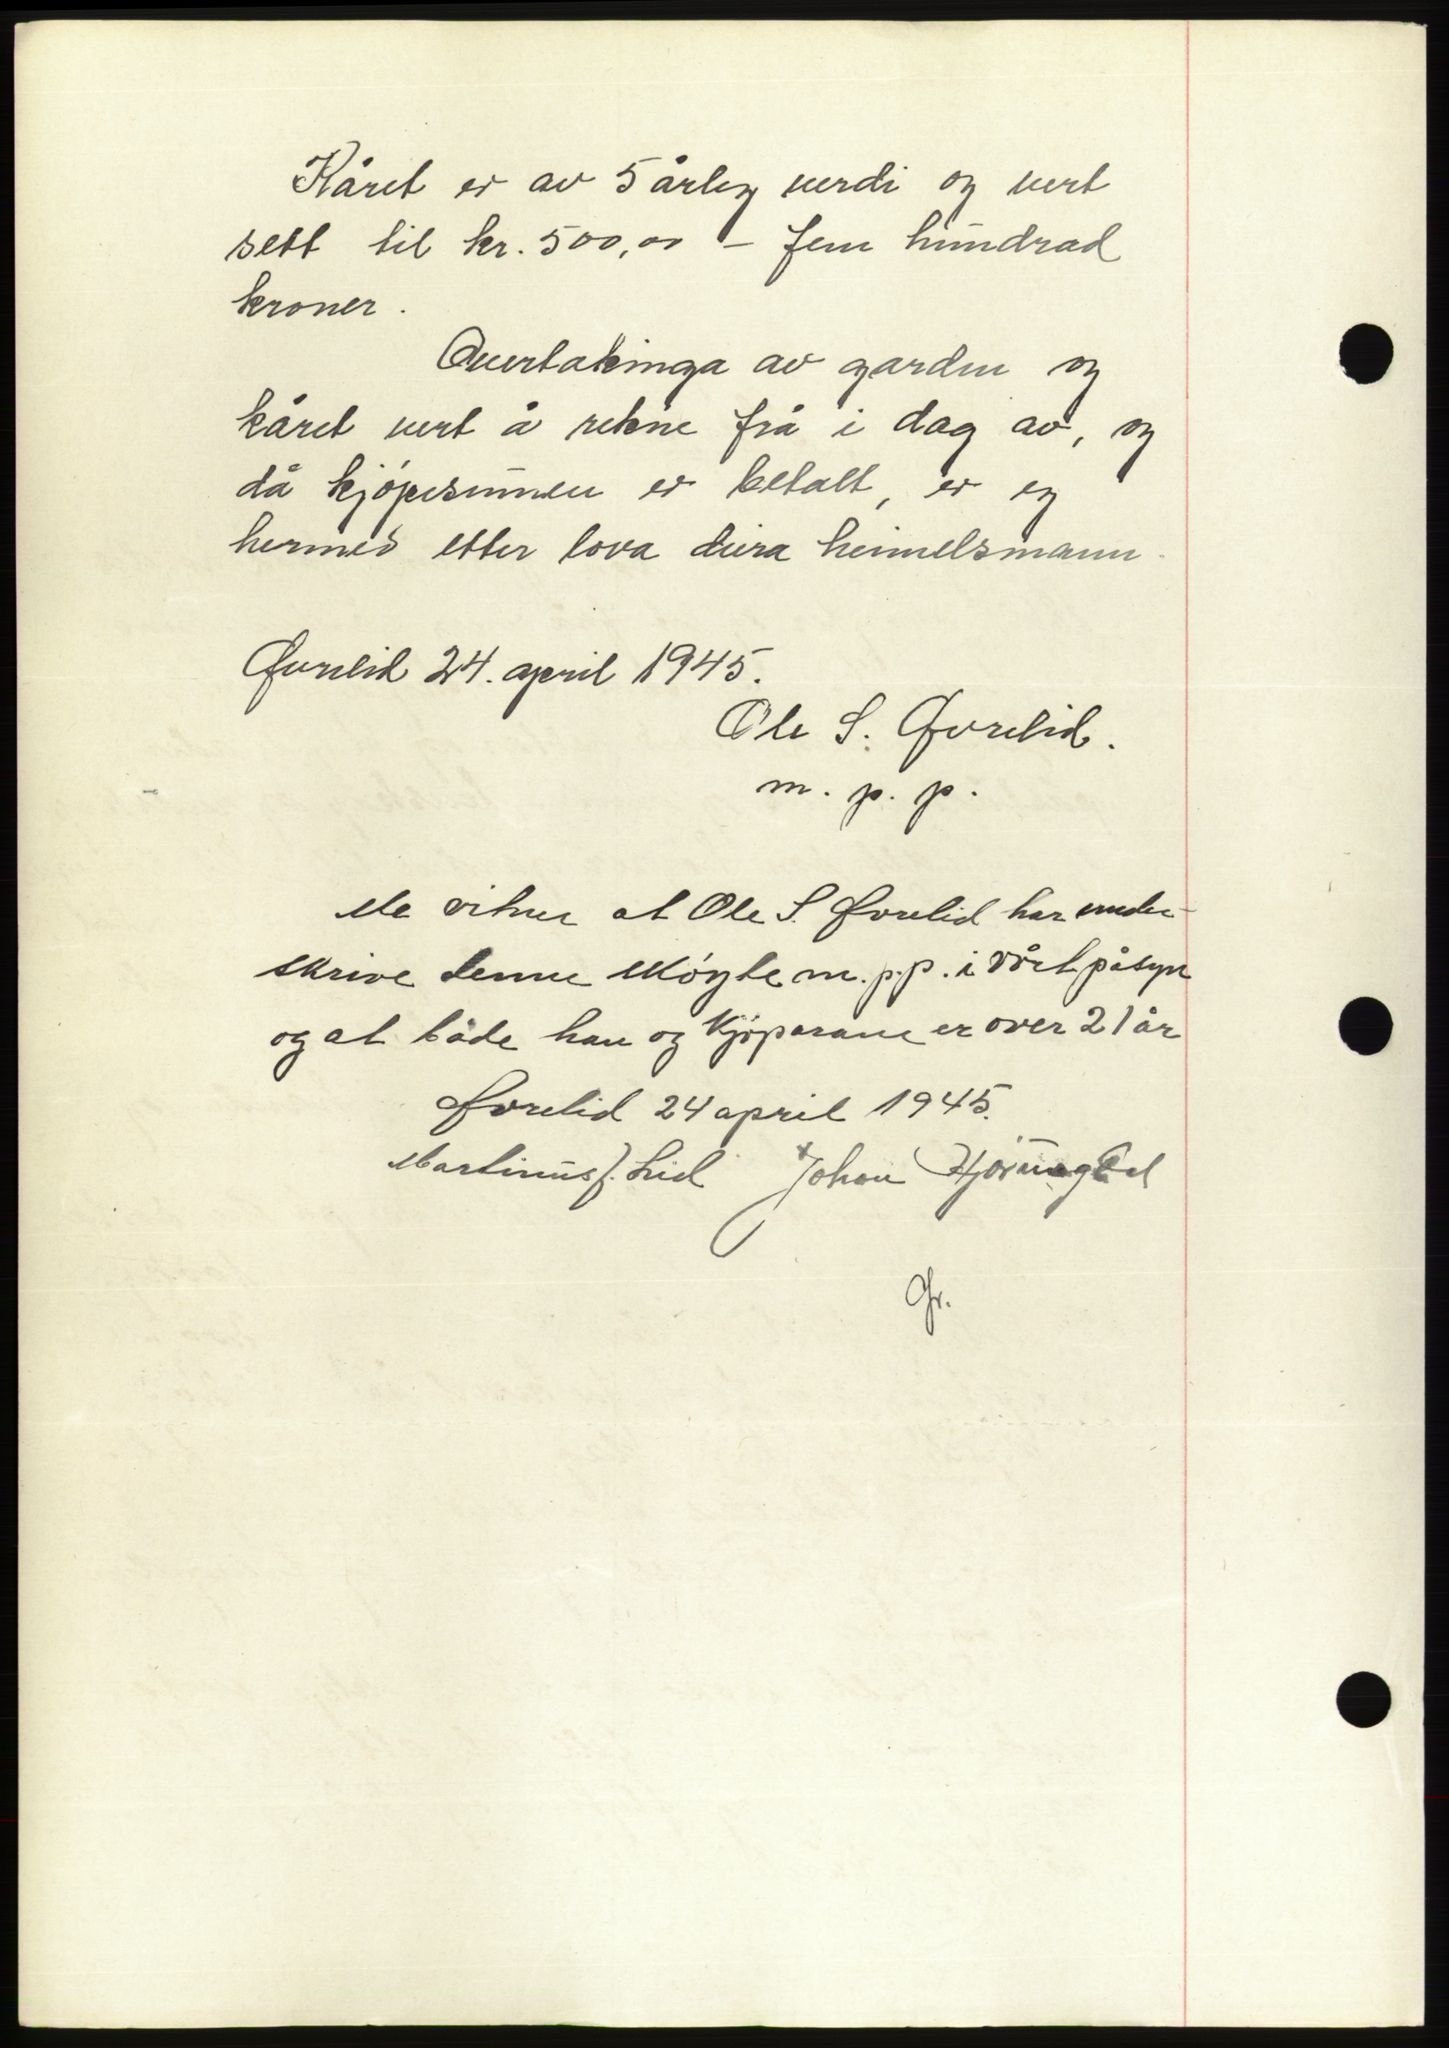 Kåret er av 5 årleg verdi og vert
sett til kr. 500,00 – fem hundrad
kroner.
Overtakinga av garden og
kåret vert å rekne frå i dag av, og
då kjöpesumen er betalt, er eg
hermed etter lova deira heimelsmann.
Øvrelid 24. april 1945.
Ole S. Øvrelid.
m. p. p.
Me vitner at Ole S. Øvrelid har under-
skrive denne skøyte m.p.p. i vårt påsyn
og at både han og kjöparane er over 21 år
Øvrelid 24 april 1945.
Martinus J. Lid Johan
Gr.